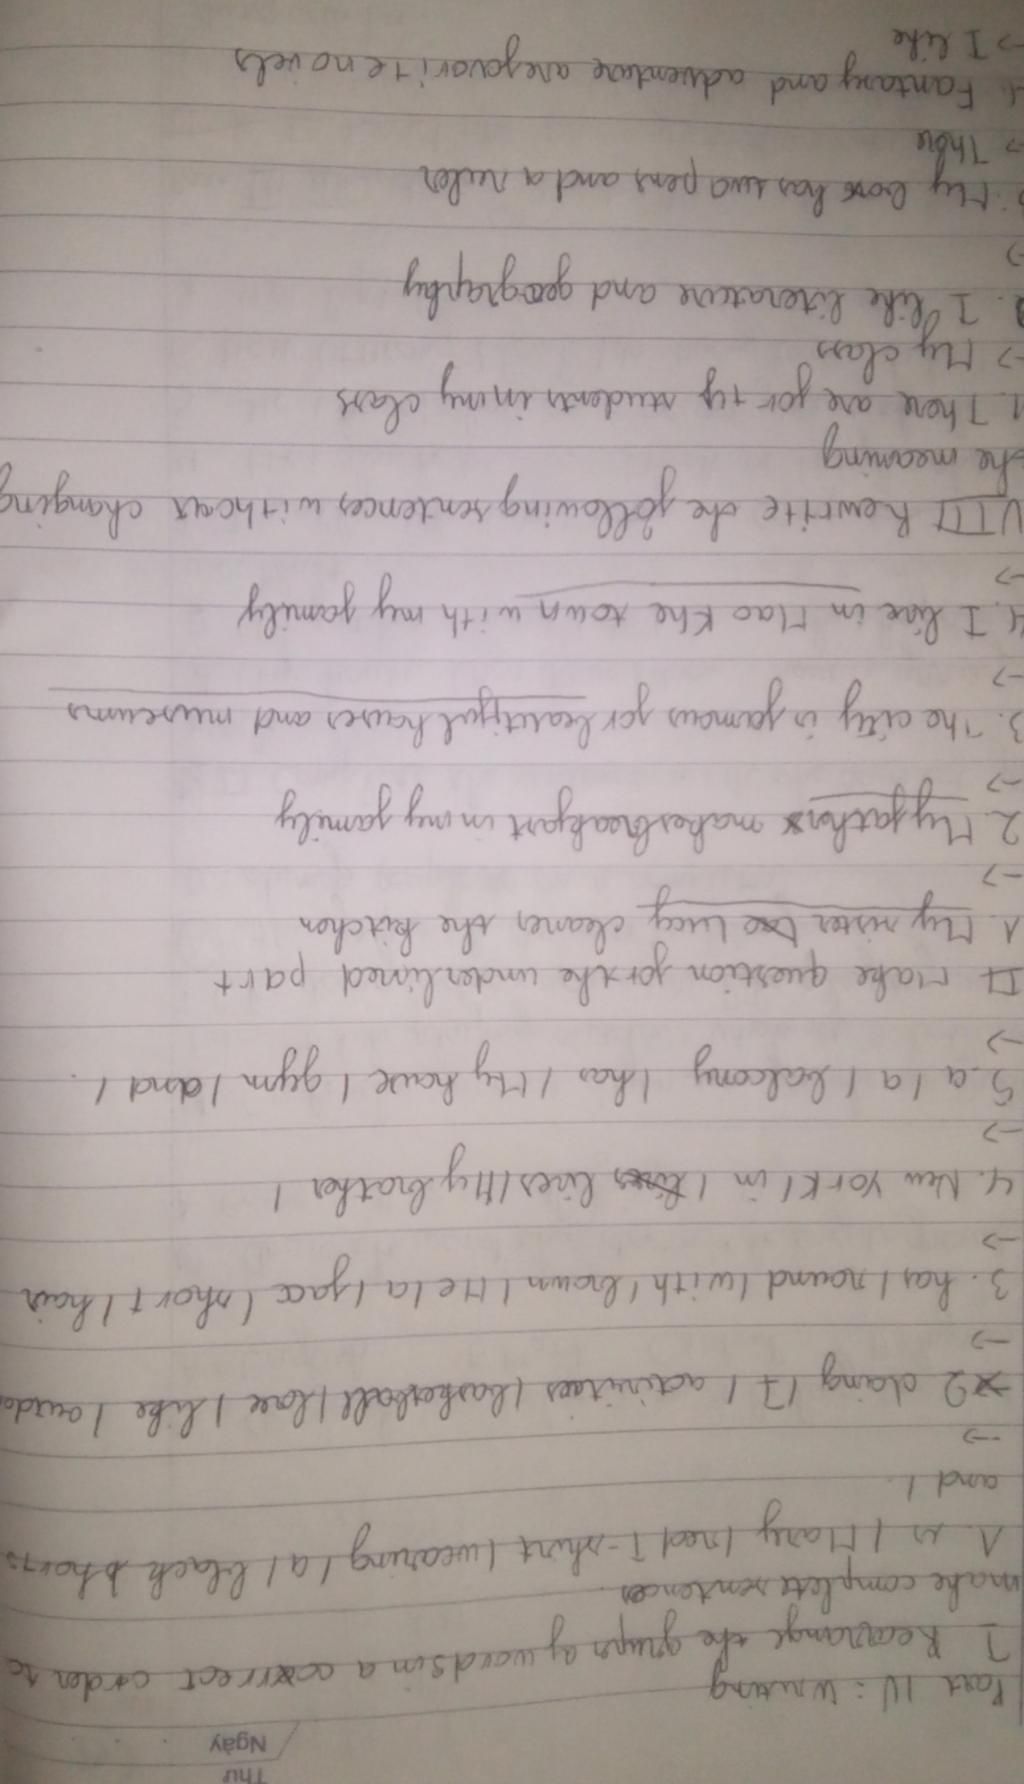 Thứ
Ngày
Part IV: Writing
I Rearrange the grups of words in a correct order to
make complete sentences.
1. is / Mary / red T-shirt / wearing / a / black shorts
and /.
→
2 doing / I / activities / basketball / love / like / outdo
→
3. has / round / with / brown / He / a / face / short / hair
→
4. New York / in / lives / My brother /
→
5. a / a / balcony / has / My house / gym / and / .
→
II Make question for the underlined part
1. My sister Lucy cleanes the kitchen
→
2. My father makes breakfast in my family
→
3. The city is famous for beautiful houses and museums
→
4. I live in Mao Khe town with my family
→
VIII Rewrite the following sentences without changing
the meaning
1. There are forty students in my class
→ My class
2. I like literature and geography
→
3. My box has two pens and a ruler
→ There
4. Fantasy and adventure are favorite novels
→ I like